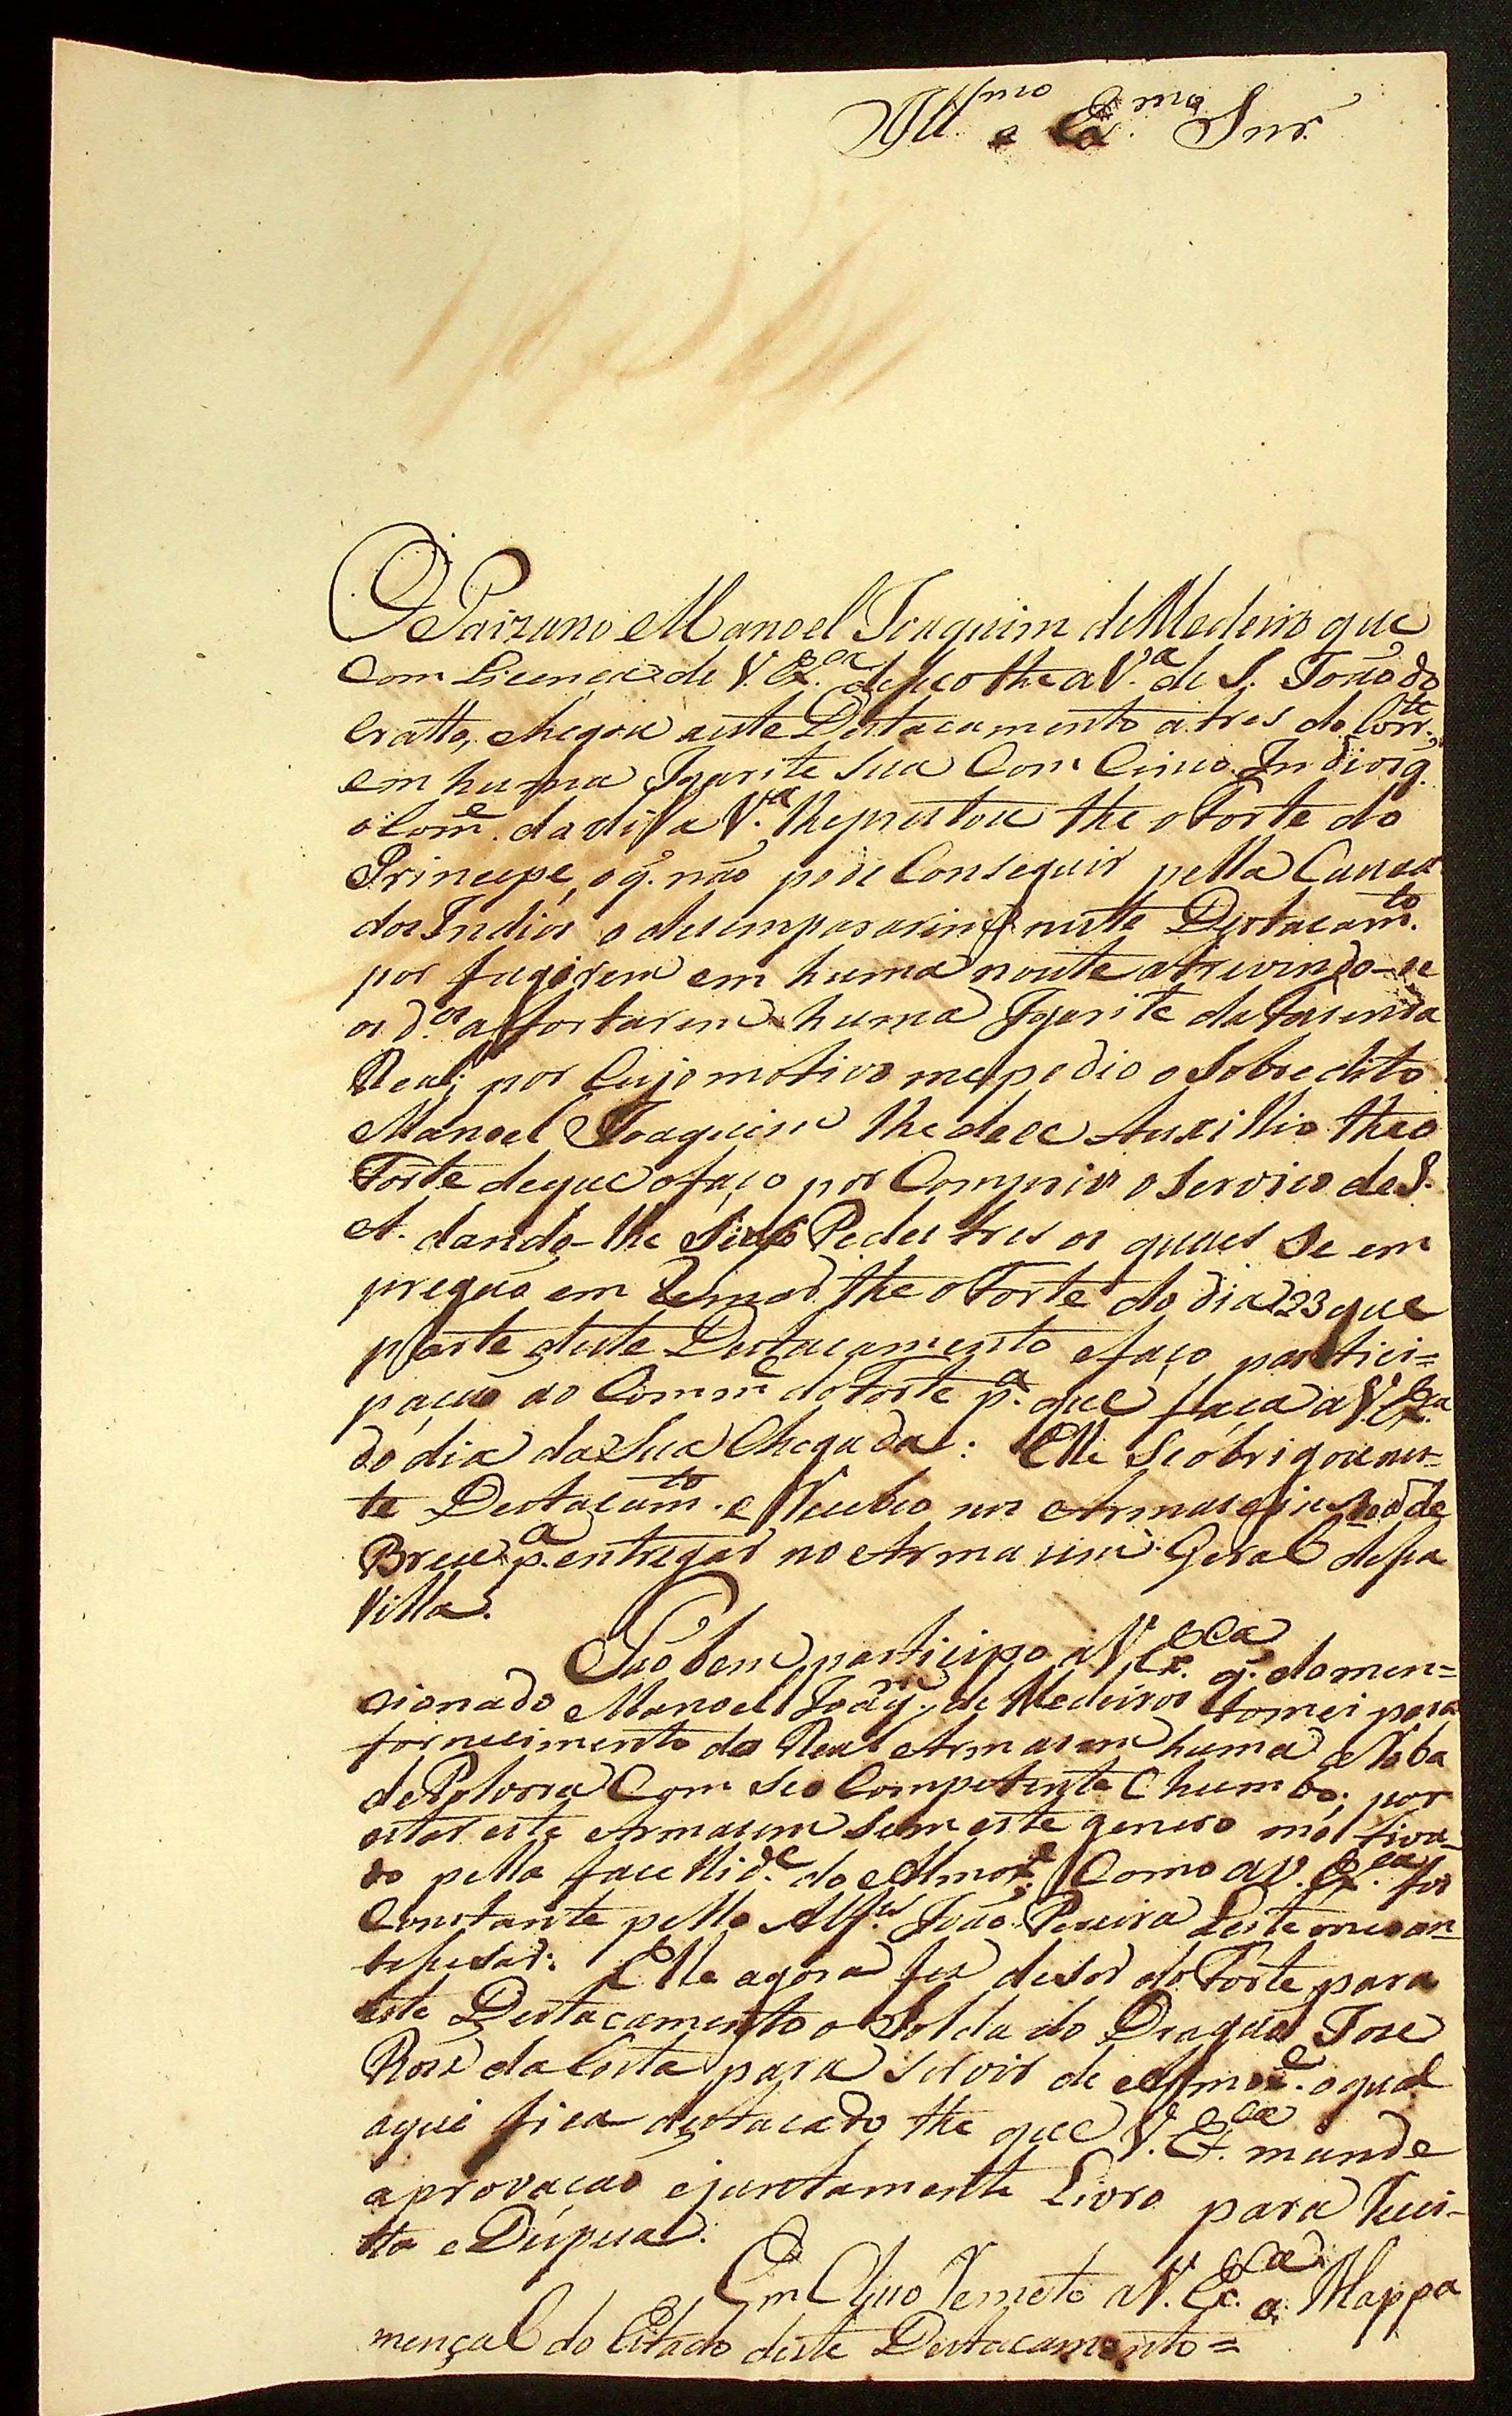 Ill.mo e Ex.mo Snr.
O Paizano Manoel Joaquim de Medeiros que
Com Licença de V. Ex.ca desceo the a V.a de S. João do
Cratto, chegou a este Destacamento a tres do Corr.te,
em huma Igarite sua Com Cinco Indios q.
o Com.e da dissa V.a lhe prestou the o Forte do
Principe, o q. não pode Conseguir pella Cauza
dos Indios o desempararim neste Destacam.to
por fugirem em huma noute atrevindo-se
os d.os a ffortarem huma Igarite da Fasenda
Real; por Cujo motivo me pedio o Sobredito
Manoel Joaquim lhe dece Auxillio the o
Forte de que o faço por Comprir o Servico de S.
A. dando-lhe Seis Pedestres os quaes Se em
pregão em Remar the o Forte do dia 23 que
parte deste Destacamento e faço partici=
pação ao Comm.e do Forte p.a que faça a V. Ex.ca
do dia da Sua Chegada: Elle Se obrigou nes-
te Destacam.to e Recebeo nos Armasens de
Breu p.a entregar no Armasem Geral dessa
Villa.
Tãobem participo a V. Ex.cca q. do men=
cionado Manoel Joaq.m de Medeiros tomei para
fornecimento do Real Armasem huma aRoba
de Polvora Com Seo Competente Chumbo; por
estar este Armasem Sem este genero motiva-
do pella facellid.e do Almox.e Como a V. Ex.ca foi
Constante pello Alf.es João Pereira Leite meo an-
tesesor: Elle agora fes deser do Forte para
este Destacamento o Soldado Dragão Jose
Rois da Costa para servir de Almox.e o qual
aqui fica destacado the que V. Ex.cca mande
aprovação e juntamente Livro para Recei-
ta e Despesa.
Em Cluo Remeto a V. Ex.cca o Mappa
mençal do Estado deste Destacamento=